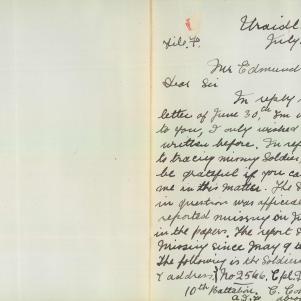 Uraidl
July
File P.
Mr Edmund
Dear Sir
In reply
letter of June 30th I'm
to you, I only wished
written before. In re
to tracing missing Soldier
be grateful if you ca
me in this matter. The S
in question was officia
reported missing on Ju
in the papers. The report
Missing since May 9
The following is the Soldier
& address, No 2566, Cpl
10th Battalion C. Co
A.I.F.